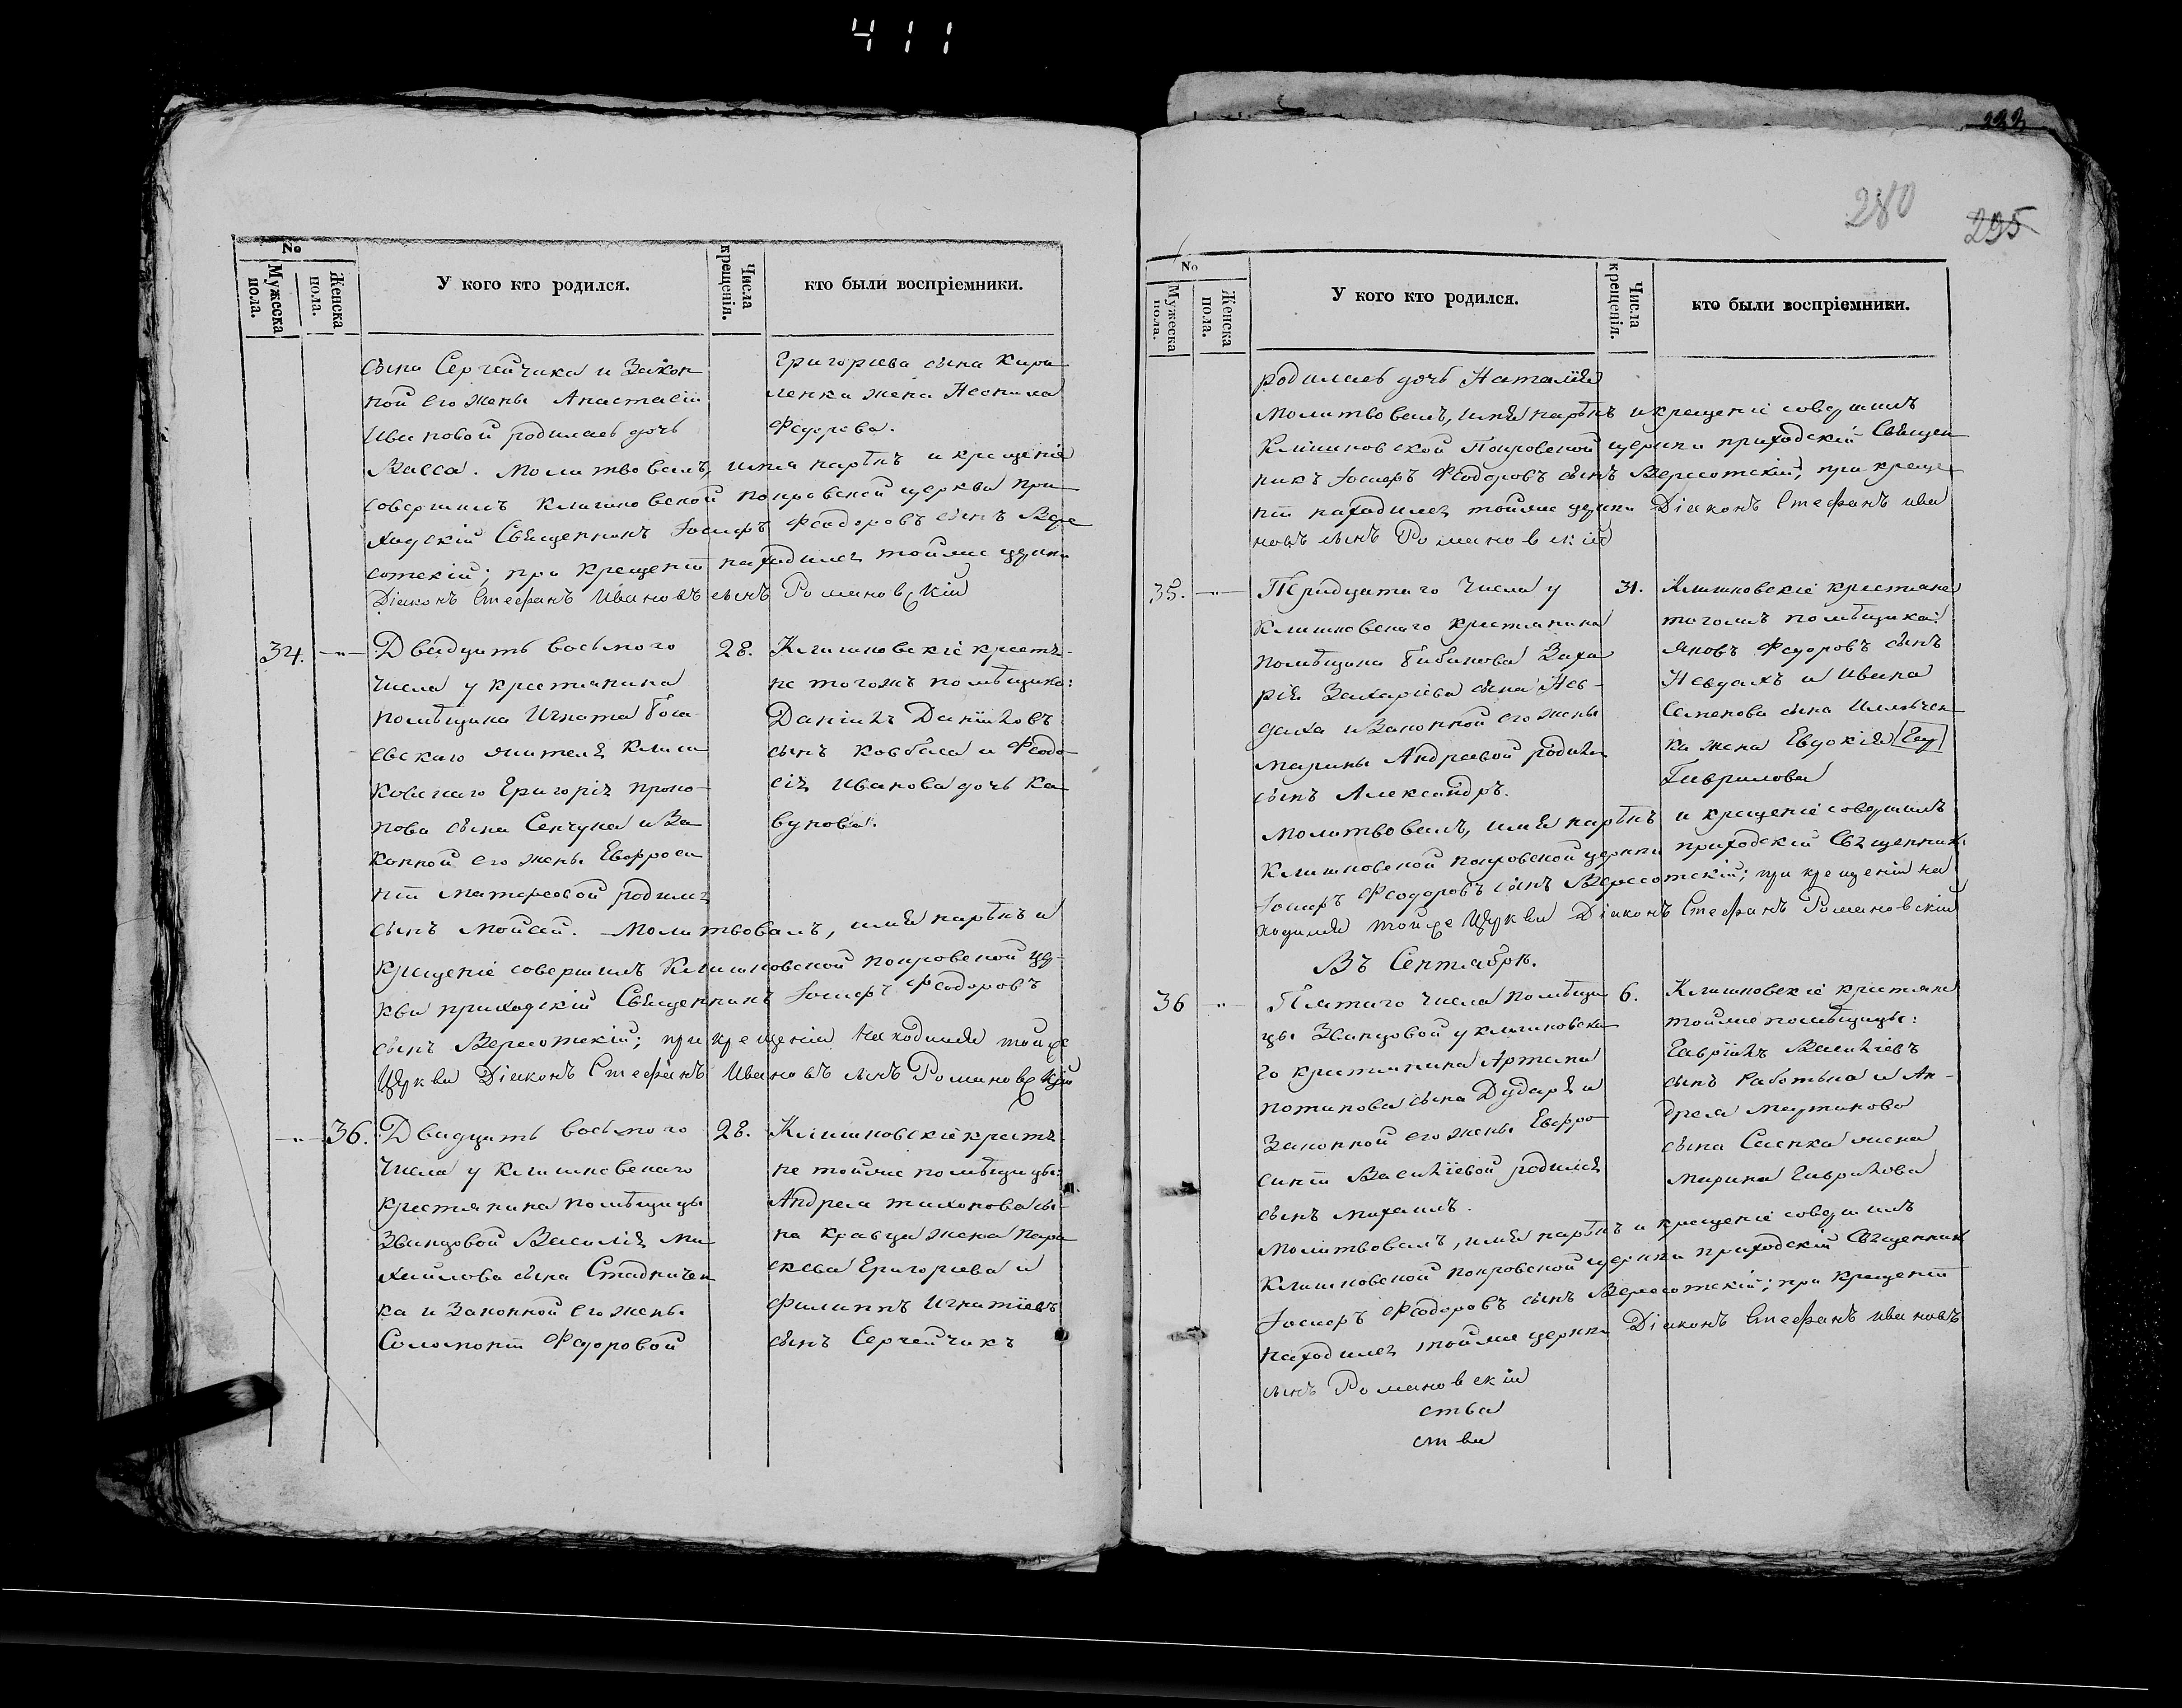 411
№
Мужеска пола.
Женска пола.
У кого кто родился.
Числа крещенія.
кто были воспріемники.
сына Сергейчика и Закон
ной его жены Анастасіи
Ивановой родилась дочь
Васса. Молитвовалъ, имя нарѣкъ и крещеніе
совершилъ Клишковской покровской церкви при
ходскій Священникъ Іосифъ Феодоровъ сынъ Вере
сотскій; при крещеніи находился тойже церкви
Діаконъ Стефанъ Ивановъ сынъ Романовскій
Григорьева сына Кири
ленка жена
Федорова.
34. -"-
Двадцать восьмого
числа у крестьянина
помѣщика Игната
евскаго жителя Клиш
ковскаго Григорія Проко
пова сына Сенчука и За
конной его жены Евфроси
ніи Матфеевой родился
сынъ Мойсей. Молитвовалъ, имя нарѣкъ и
крещеніе совершилъ Клишковской покровской цер
кви приходскій Священникъ Іосифъ Феодоровъ
сынъ Вересотскій; при крещеніи находился тойже
Церкви Діаконъ Стефанъ Ивановъ сынъ Романовскій
28.
Клишковскіе крестья
не тогожъ помѣщика:
Даніилъ Даніиловъ
сынъ Ковбаса и Феодо
сія Иванова дочь Ка
вунова.
-"- 36.
Двадцать восьмого
числа у клишковскаго
крестьянина помѣщицы
Званцовой Василія Ми
хайлова сына Стадничен
ка и Законной его жены
Соломоніи Федоровой
28.
Клишковскіе крестья
не тойже помѣщицы:
Андрея Тихонова сы
на Кравца жена Пара
скева Григорьева и
Филиппъ Игнатіевъ
сынъ Сергейчикъ
222
280
295
№
Мужеска пола.
Женска пола.
У кого кто родился.
Числа крещенія.
кто были воспріемники.
родилась дочь Наталія
Молитвовалъ, имя нарѣкъ и крещеніе совершилъ
Клишковской Покровской церкви приходскій Священ
никъ Іосифъ Феодоровъ сынъ Вересотскій; при креще
ніи находился тойже церкви Діаконъ Стефанъ Ива
новъ сынъ Романовскій
35. -"-
Тридцатаго числа у
Клишковскаго крестьянина
помѣщика Бибикова Заха
рія Захаріева сына Нев
даха и Законной его жены
Марины Андреевой родился
сынъ Александръ.
Молитвовалъ, имя нарѣкъ и крещеніе совершилъ
Клишковской покровской церкви приходскій Священникъ
Іосифъ Феодоровъ сынъ Вересотскій; при крещеніи на
ходился тойже Церкви Діаконъ Стефанъ Романовскій
31.
Клишковскіе крестьяне
тогожъ помѣщика:
Яковъ Федоровъ сынъ
Невдахъ и Ивана
Семенова сына
ка жена Евдокія
Гаврилова
Въ Сентябрѣ.
36 -"-
Пятаго числа помѣщи
цы Званцовой у клишковска
го крестьянина Артема
Потапова сына Дударя и
Законной его жены Евфро
синіи Василіевой родился
сынъ Михаилъ.
Молитвовалъ, имя нарѣкъ и крещеніе совершилъ
Клишковской покровской церкви приходскій Священникъ
Іосифъ Феодоровъ сынъ Вересотскій; при крещеніи
находился тойже церкви Діаконъ Стефанъ Ивановъ
сынъ Романовскій
ства
ства
6.
Клишковскіе крестьяне
тойже помѣщицы:
Гавріилъ Василіевъ
сынъ Работька и Ан
дрея Мартинова
сына Саенка жена
Марина Гаврилова